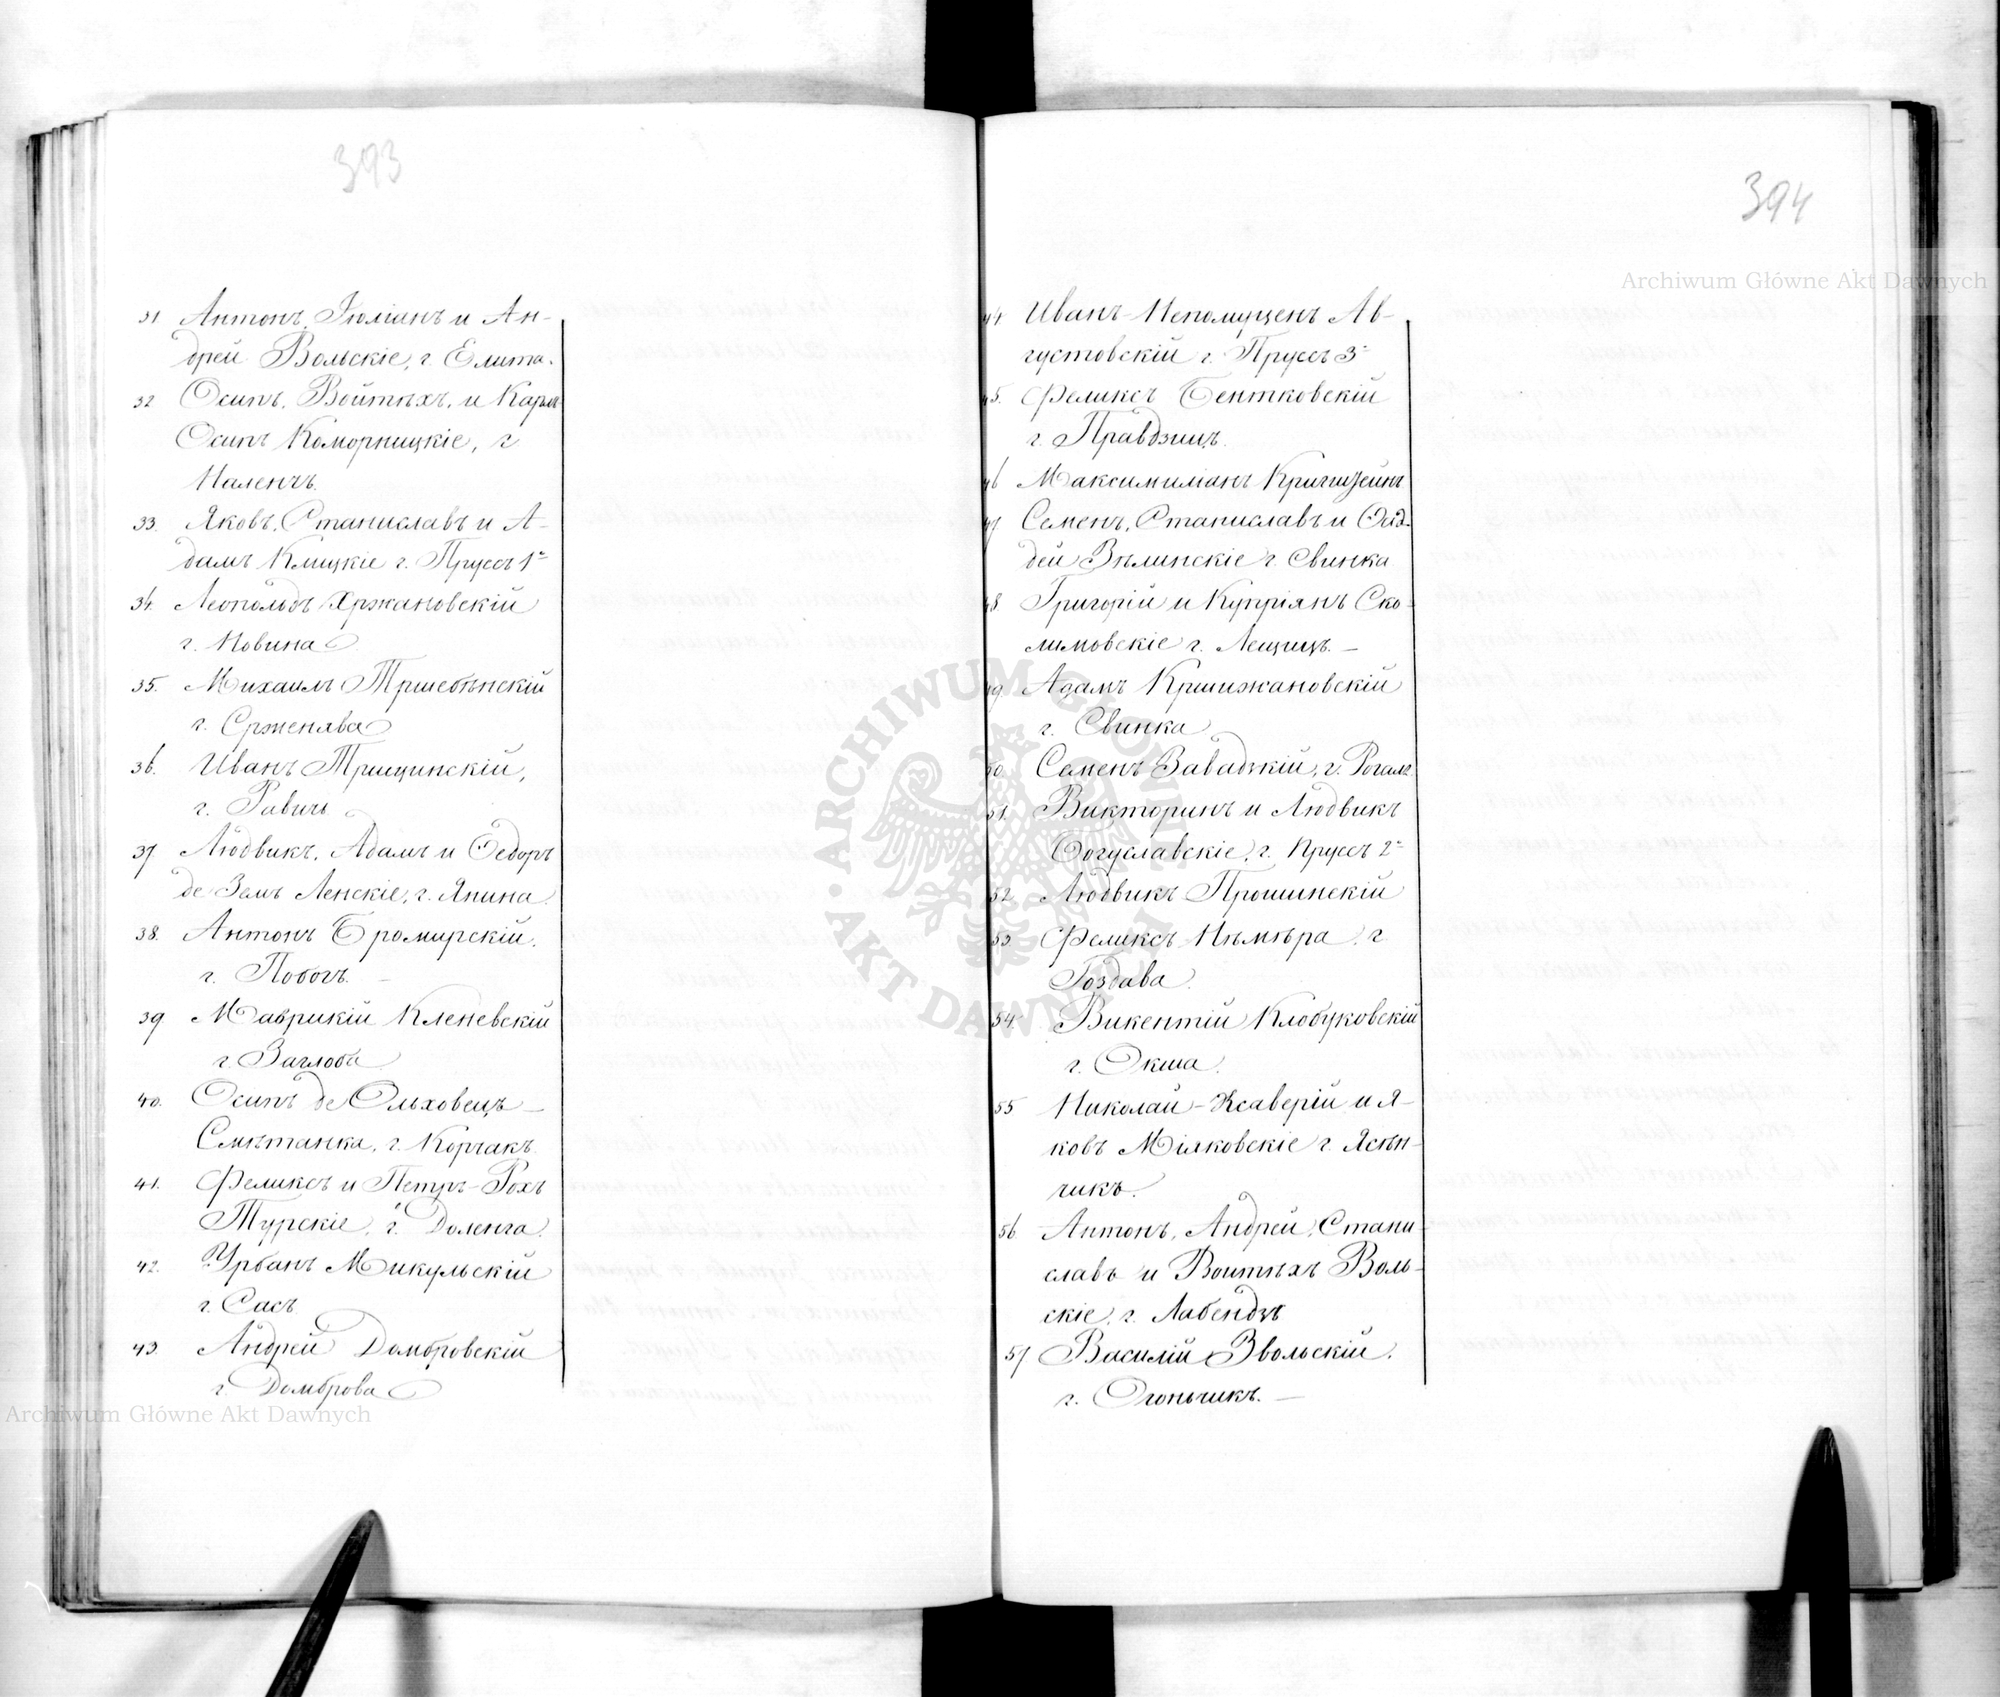 393
31 Антонъ, Юліанъ и Ан-
дрей Вольскіе, г. Елита.
32 Осипъ, Войтѣхъ, и Карлъ
Осипъ Коморницкіе, г.
Наленчъ.
33. Яковъ, Станиславъ и А-
дамъ Клицкіе г. Пруссъ 1º
34. Леопольдъ Хржановскій
г. Новина
35. Михаилъ Тршебѣнскій
г. Срженява
36. Иванъ Тршцинскій,
г. Равичъ
37. Людвикъ, Адамъ и Ѳедоръ
де Земъ Ленскіе, г. Янина.
38. Антонъ Бромирскій.
г. Побогъ. —
39 Маврикій Кленевскій
г. Заглоба
40. Осипъ де Ольховецъ —
Смѣтанка, г. Корчакъ.
41. Феликсъ и Петръ-Рохъ
Турскіе, г. Доленга.
42. Урбанъ Микульскій
г. Сасъ
43. Андрей Домбровскій
г. Домброва
394
44 Иванъ-Непомуценъ Ав-
густовскій г. Пруссъ 3º
45. Феликсъ Бентковскій
г. Правдзицъ.
46 Максимиліанъ
47 Семенъ, Станиславъ и Ѳад-
дей Вѣлинскіе г. Свинка
48. Григорій и Купріянъ Ско-
лимовскіе г. Лещицъ. —
49. Адамъ Кршижановскій
г. Свинка
50. Семенъ Завадзкій, г. Рогаля
51. Викторинъ и Людвикъ
Богуславскіе, г. Пруссъ 2º
52. Людвикъ Прошинскій
53. Феликсъ Нѣмѣра. г.
Гоздава.
54. Викентій Клобуковскій
г. Окша.
55 Николай-Ксаверій и Я-
ковъ Міяковскіе г. Ясѣн-
чикъ.
56. Антонъ, Андрей, Стани-
славъ и Войтѣхъ Воль-
скіе, г. Лабендзь
57 Василій Звольскій.
г. Огончикъ. —
Archiwum Główne Akt Dawnych
ARCHIWUM GŁÓWNE • AKT DAWNYCH •
Archiwum Główne Akt Dawnych